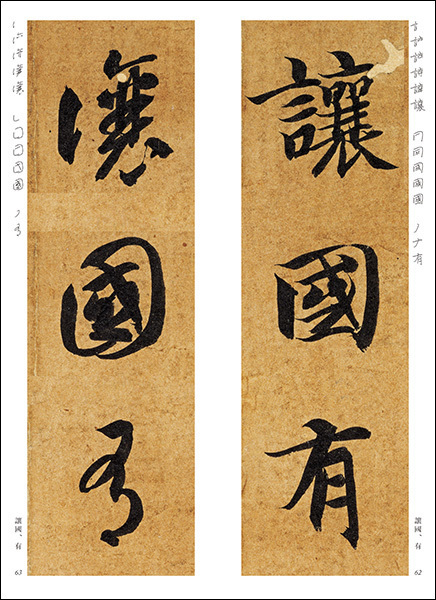 讓國有
讓國、有
62
讓國有
讓國、有
63